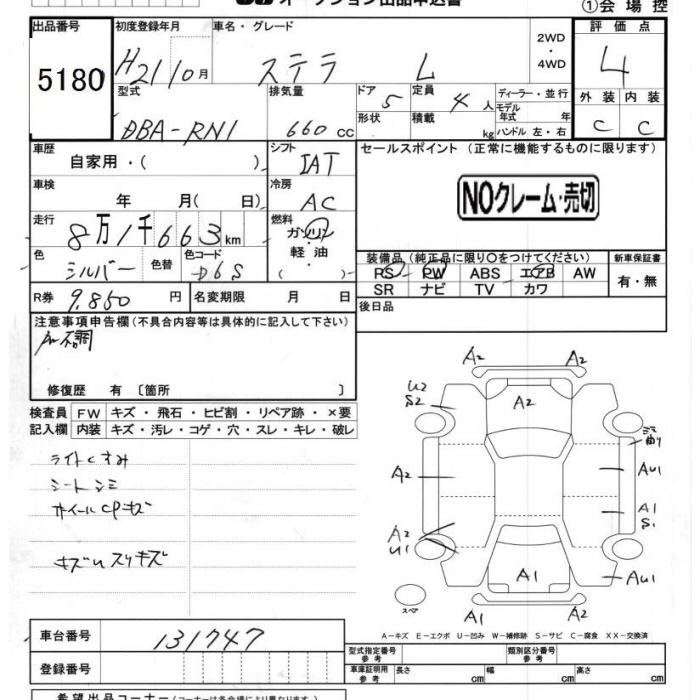 オークション出品申込書
①会場控
出品番号 初度登録年月 車名・グレード 2WD ・ 4WD 評価点
5180 H21 10月 ステラ L 4
型式 排気量 ドア 5 定員 4人 ディーラー・並行 外装 内装
DBA-RN1 660cc 形状 積載 kg モデル年式 年 C C
ハンドル 左・右
車歴 自家用・( ) シフト IAT セールスポイント (正常に機能するものに限ります)
車検 年 月( 日) 冷房 AC NOクレーム・売切
走行 8万1千663km 燃料 ガソリン 軽油 ( )
装備品 (純正品に限り○をつけてください) 新車保証書
色 シルバー 色替 色コード D6S PS PW ABS エアB AW 有・無
SR ナビ TV カワ
R券 9,850円 名変期限 月 日 後日品
注意事項申告欄(不具合内容等は具体的に記入して下さい)
修復歴 有 〔箇所 〕
検査員 FW キズ・飛石・ヒビ割・リペア跡・×要
記入欄 内装 キズ・汚レ・コゲ・穴・スレ・キレ・破レ
ライトくすみ
シートシミ
ホイールCPキズ
キズU スリキズ
A2 A2
U2 S2 A2
ミラー
A2 AU1
A1 S1
A2 U1
A1 AU1
スペア
A1 A2
A-キズ E-エクボ U-凹み W-補修跡 S-サビ C-腐食 XX-交換済
車台番号 131747 型式指定番号 参考 類別区分番号 参考
登録番号 車庫証明用 参考 長さ cm 幅 cm 高さ cm
希望出品コーナー(コーナーは各会場により異なります)